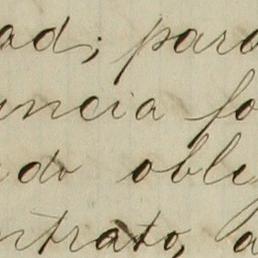 ad; para
uncia fo
do obli
ntrato, a